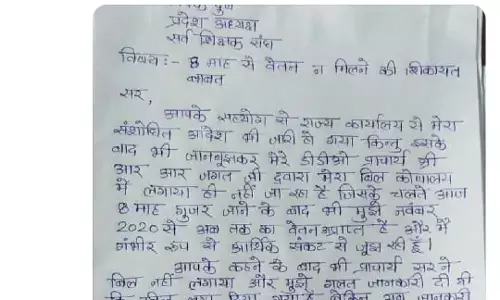 प्रदेश अध्यक्ष
सर्व शिक्षक संघ
विषय:- 8 माह से वेतन न मिलने की शिकायत
बाबत
सर,
आपके सहयोग से राज्य कार्यालय से मेरा
संशोधित आदेश भी जारी हो गया किन्तु इसके
बाद भी जानबूझकर मेरे डीडीओ प्राचार्य श्री
आर आर जगत जी द्वारा मेरा बिल कोषालय
में लगाया ही नहीं जा रहा है जिसके चलते आज
8 माह गुजर जाने के बाद भी मुझे नवंबर
2020 से अब तक का वेतन अप्राप्त है और मैं
गंभीर रूप से आर्थिक संकट से जूझ रही हूँ।
आपके कहने के बाद भी प्राचार्य सर ने
बिल नहीं लगाया और मुझे गलत जानकारी दी भी